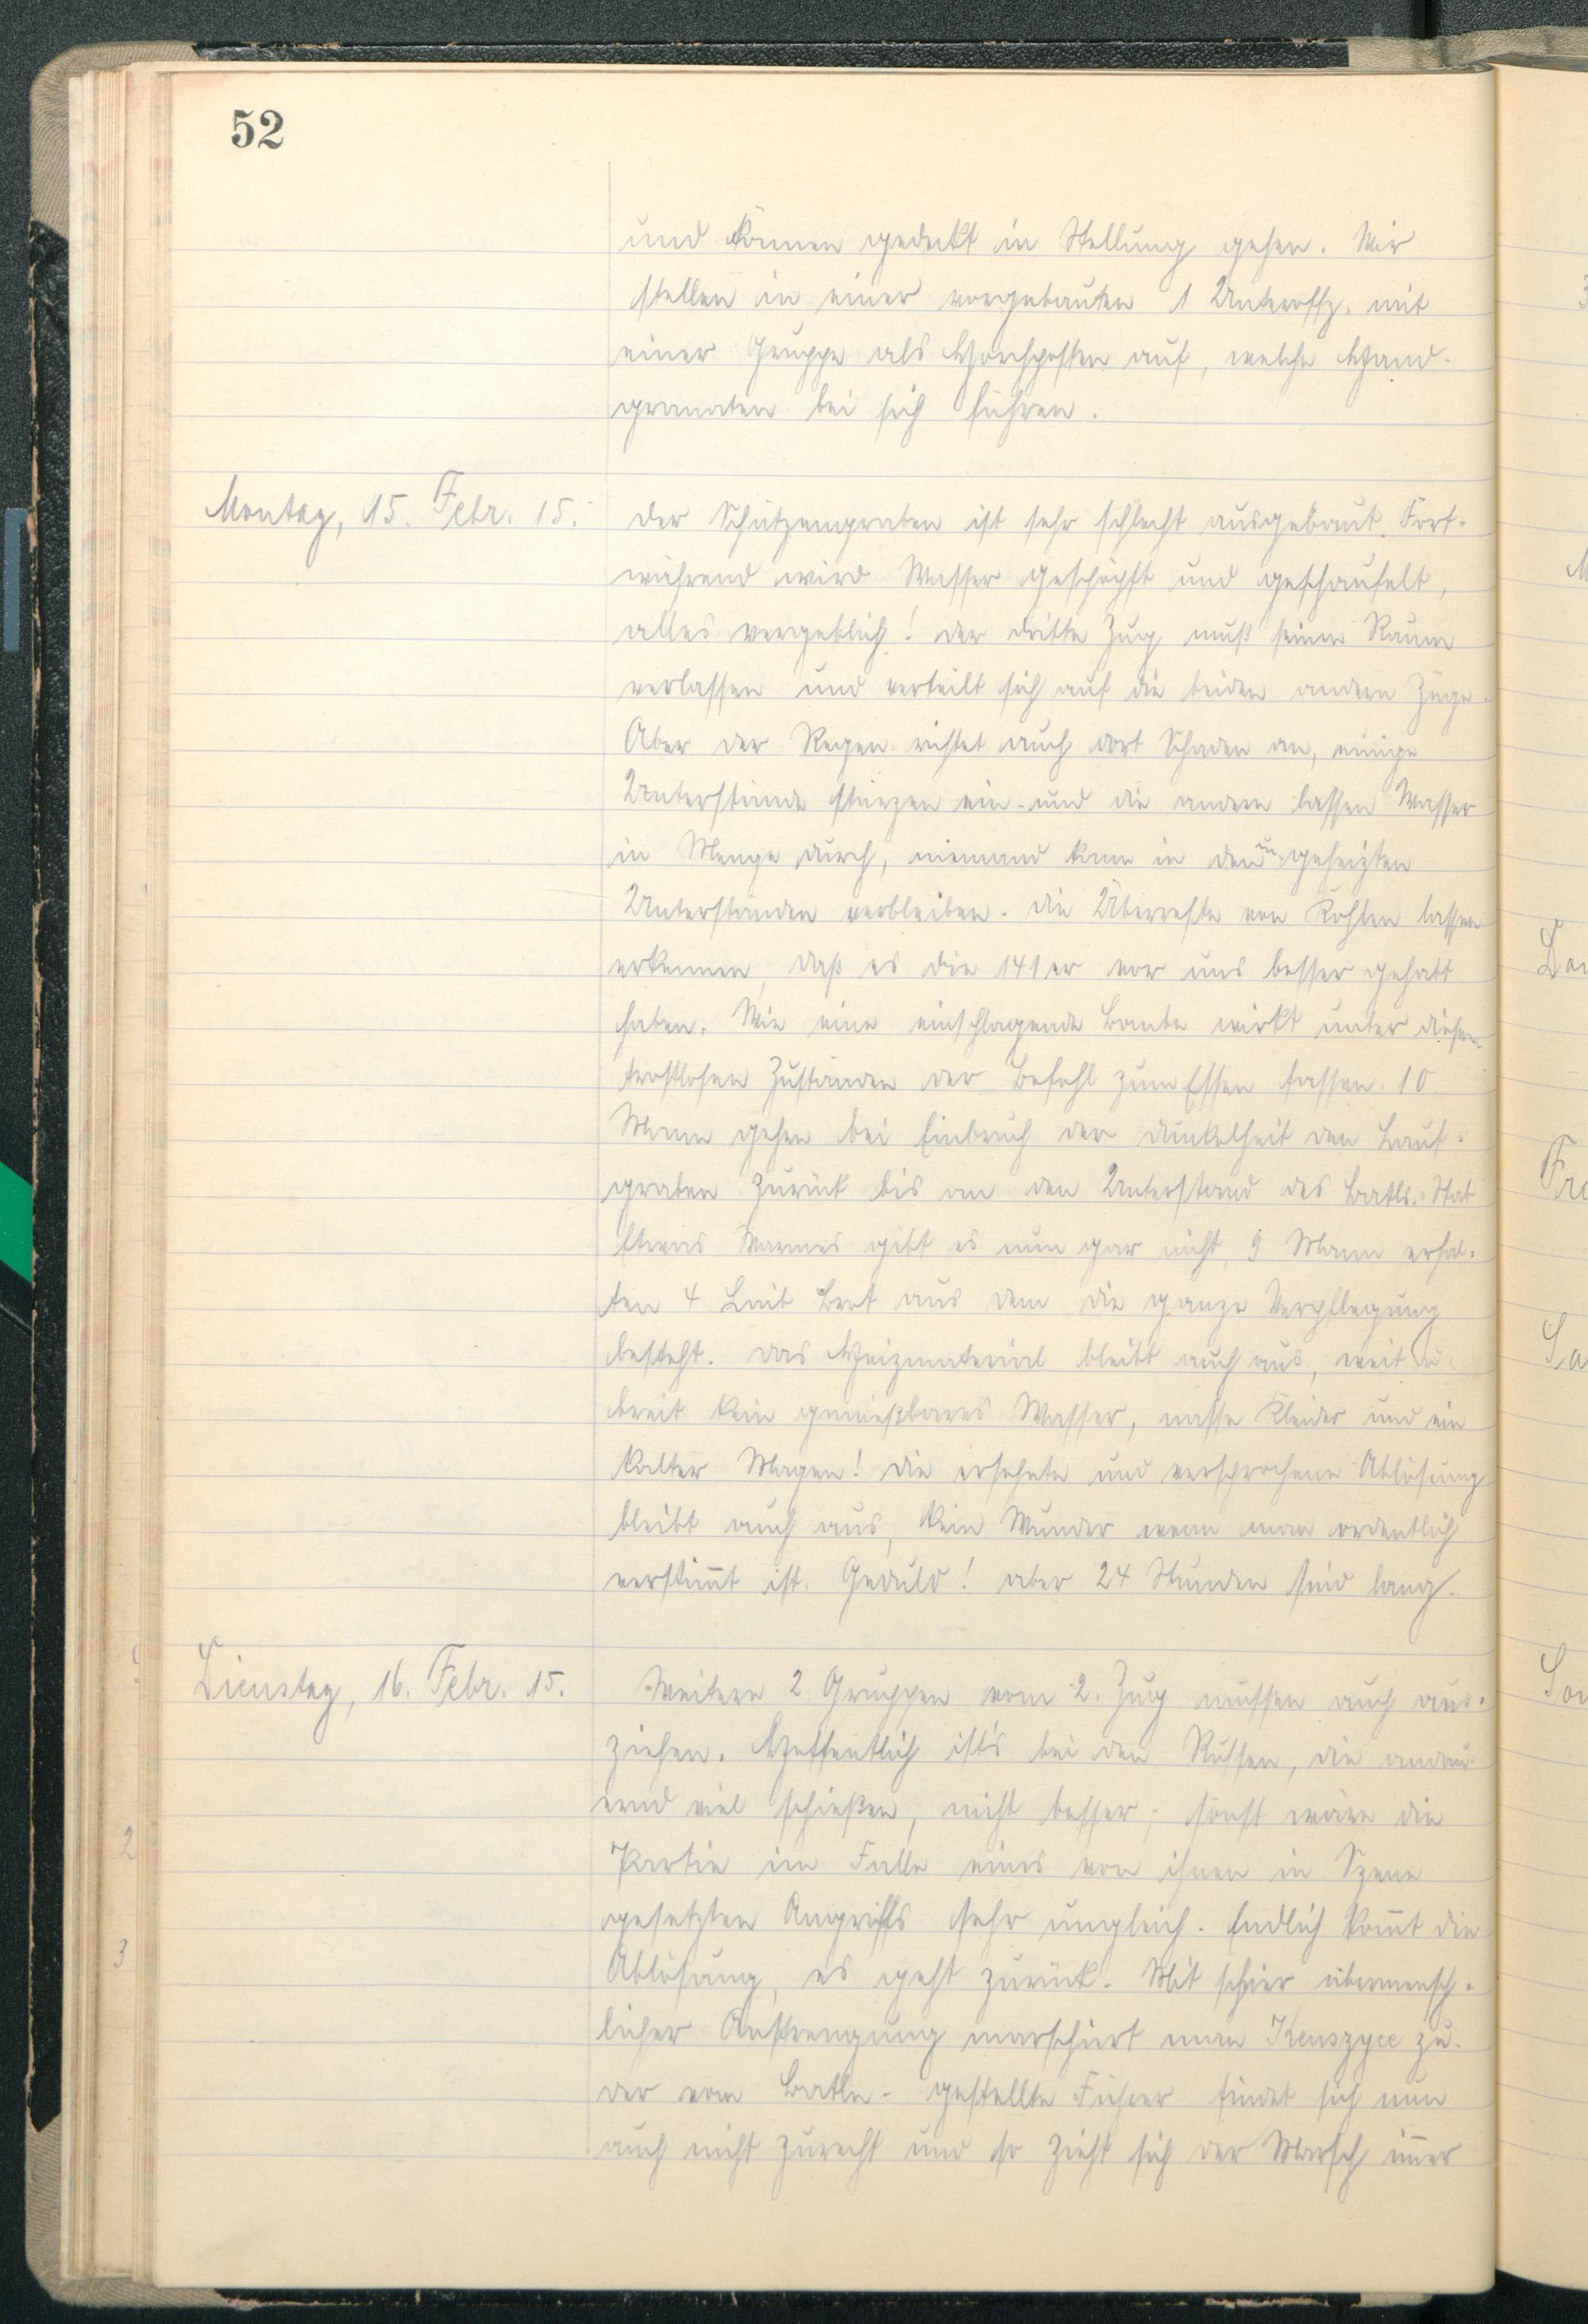 52
und können gedeckt in Stellung gehen. Wir
stellen in einer vorgebauten 1 Unteroffz. mit
einer Gruppe als Horchposten auf, welche Hand-
granaten bei sich führen.
Montag, 15. Febr. 15.
Der Schützengraben ist sehr schlecht ausgebaut. Fort-
während wird Wasser geschöpft und geschaufelt,
alles vergeblich! Der dritte Zug muß seinen Raum
verlassen und verteilt sich auf die beiden andern Züge.
Aber der Regen richtet auch dort Schaden an, einige
Unterstände stürzen ein und die andern lassen Wasser
in Menge durch, niemand kann in den un-geheizten
Unterständen verbleiben. Die Überreste von Kohlen lassen
erkennen, daß es die 141er vor uns besser gehabt
haben. Wie eine einschlagende Bombe wirkt unter diesen
trostlosen Zuständen der Befehl zum Essen fassen. 10
Mann gehen bei Einbruch der Dunkelheit den Lauf-
graben zurück bis an den Unterstand des Batls.-Stab
Etwas Warmes gibt es nun gar nicht, 9 Mann erhal-
ten 4 Laib Brot aus dem die ganze Verpflegung
besteht. Das Heizmaterial bleibt auch aus, weit u.
breit kein genießbares Wasser, nasse Kleider und ein
kalter Magen! Die ersehnte und versprochene Ablösung
bleibt auch aus, kein Wunder wenn man ordentlich
verstimt ist. Geduld! aber 24 Stunden sind lang.
Dienstag, 16. Febr. 15.
Weitere 2 Gruppen vom 2. Zug müssen auch aus-
ziehen. Hoffentlich ist's bei den Russen, die andau-
ernd viel schießen, nicht besser, sonst wäre die
Partie im Falle eines von ihnen in Szene
gesetzten Angriffs sehr ungleich. Endlich komt die
Ablösung, es geht zurück. Mit schier übermensch-
licher Anstrengung marschiert man Kenszyce zu.
Der vom Batln. gestellte Führer findet sich nun
auch nicht zurecht und so zieht sich der Marsch imer